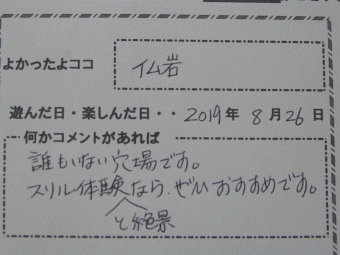 よかったよココ
仏岩
遊んだ日・楽しんだ日・・2019年8月26日
何かコメントがあれば
誰もいない穴場です。
スリル体験なら、ぜひおすすめです。
と絶景